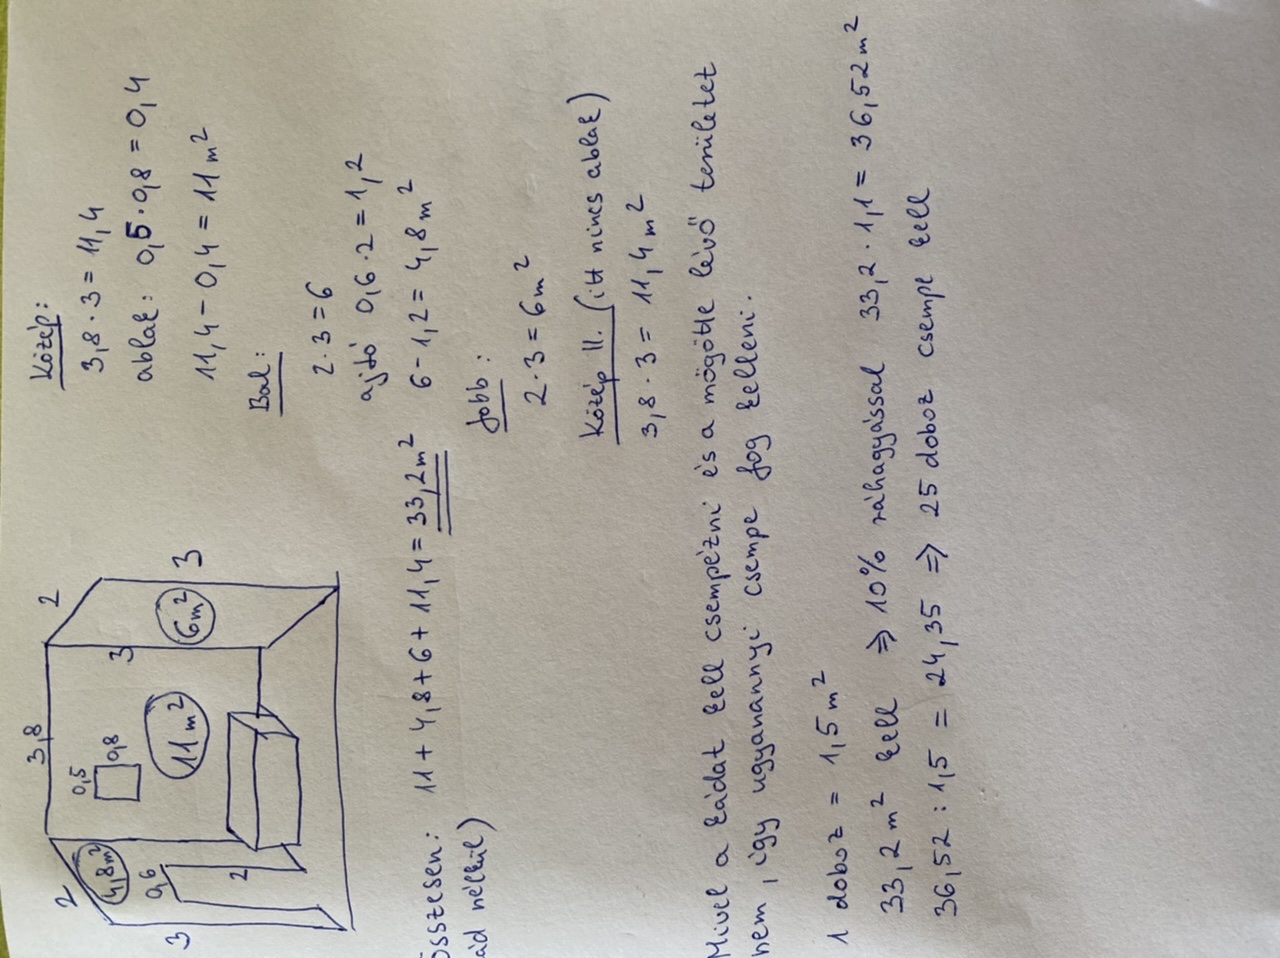 Közép:
3,8 · 3 = 11,4
ablak: 0,5 · 0,8 = 0,4
11,4 - 0,4 = 11 m²
Bal:
2 · 3 = 6
ajtó 0,6 · 2 = 1,2
6 - 1,2 = 4,8 m²
Jobb:
2 · 3 = 6 m²
Közép II. (itt nincs ablak)
3,8 · 3 = 11,4 m²
2
3,8
2
3
3
3
0,5
0,8
0,6
2
4,8 m²
11 m²
6 m²
összesen: 11 + 4,8 + 6 + 11,4 = 33,2 m²
ád nélkül)
Mivel a kádat kell csempézni és a mögötte lévő területet
nem, így ugyanannyi csempe fog kelleni.
1 doboz = 1,5 m²
33,2 m² kell ⇒ 10% ráhagyással 33,2 · 1,1 = 36,52 m²
36,52 : 1,5 = 24,35 ⇒ 25 doboz csempe kell